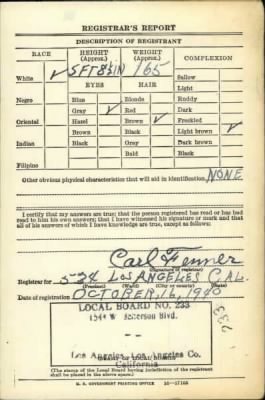 REGISTRAR'S REPORT
DESCRIPTION OF REGISTRANT
RACE HEIGHT (Approx.) WEIGHT (Approx.) COMPLEXION
White ✓ 5 FT 8½ IN 165 Sallow
EYES HAIR Light
Negro Blue Blonde Ruddy
Gray ✓ Red Dark
Oriental Hazel Brown ✓ Freckled
Brown Black Light brown ✓
Indian Black Gray Dark brown
Bald Black
Filipino
Other obvious physical characteristics that will aid in identification NONE
I certify that my answers are true; that the person registered has read or has had
read to him his own answers; that I have witnessed his signature or mark and that
all of his answers of which I have knowledge are true, except as follows:
Carl Fenner
(Signature of registrar)
Registrar for 524 LOS ANGELES CAL.
(Precinct) (Ward) (City or county) (State)
Date of registration OCTOBER, 16, 1940
LOCAL BOARD NO. 233
W Jefferson Blvd.
233
Los Angeles, Los Angeles Co.
California
(The stamp of the Local Board having jurisdiction of the registrant
shall be placed in the above space.)
U. S. GOVERNMENT PRINTING OFFICE 16—17105